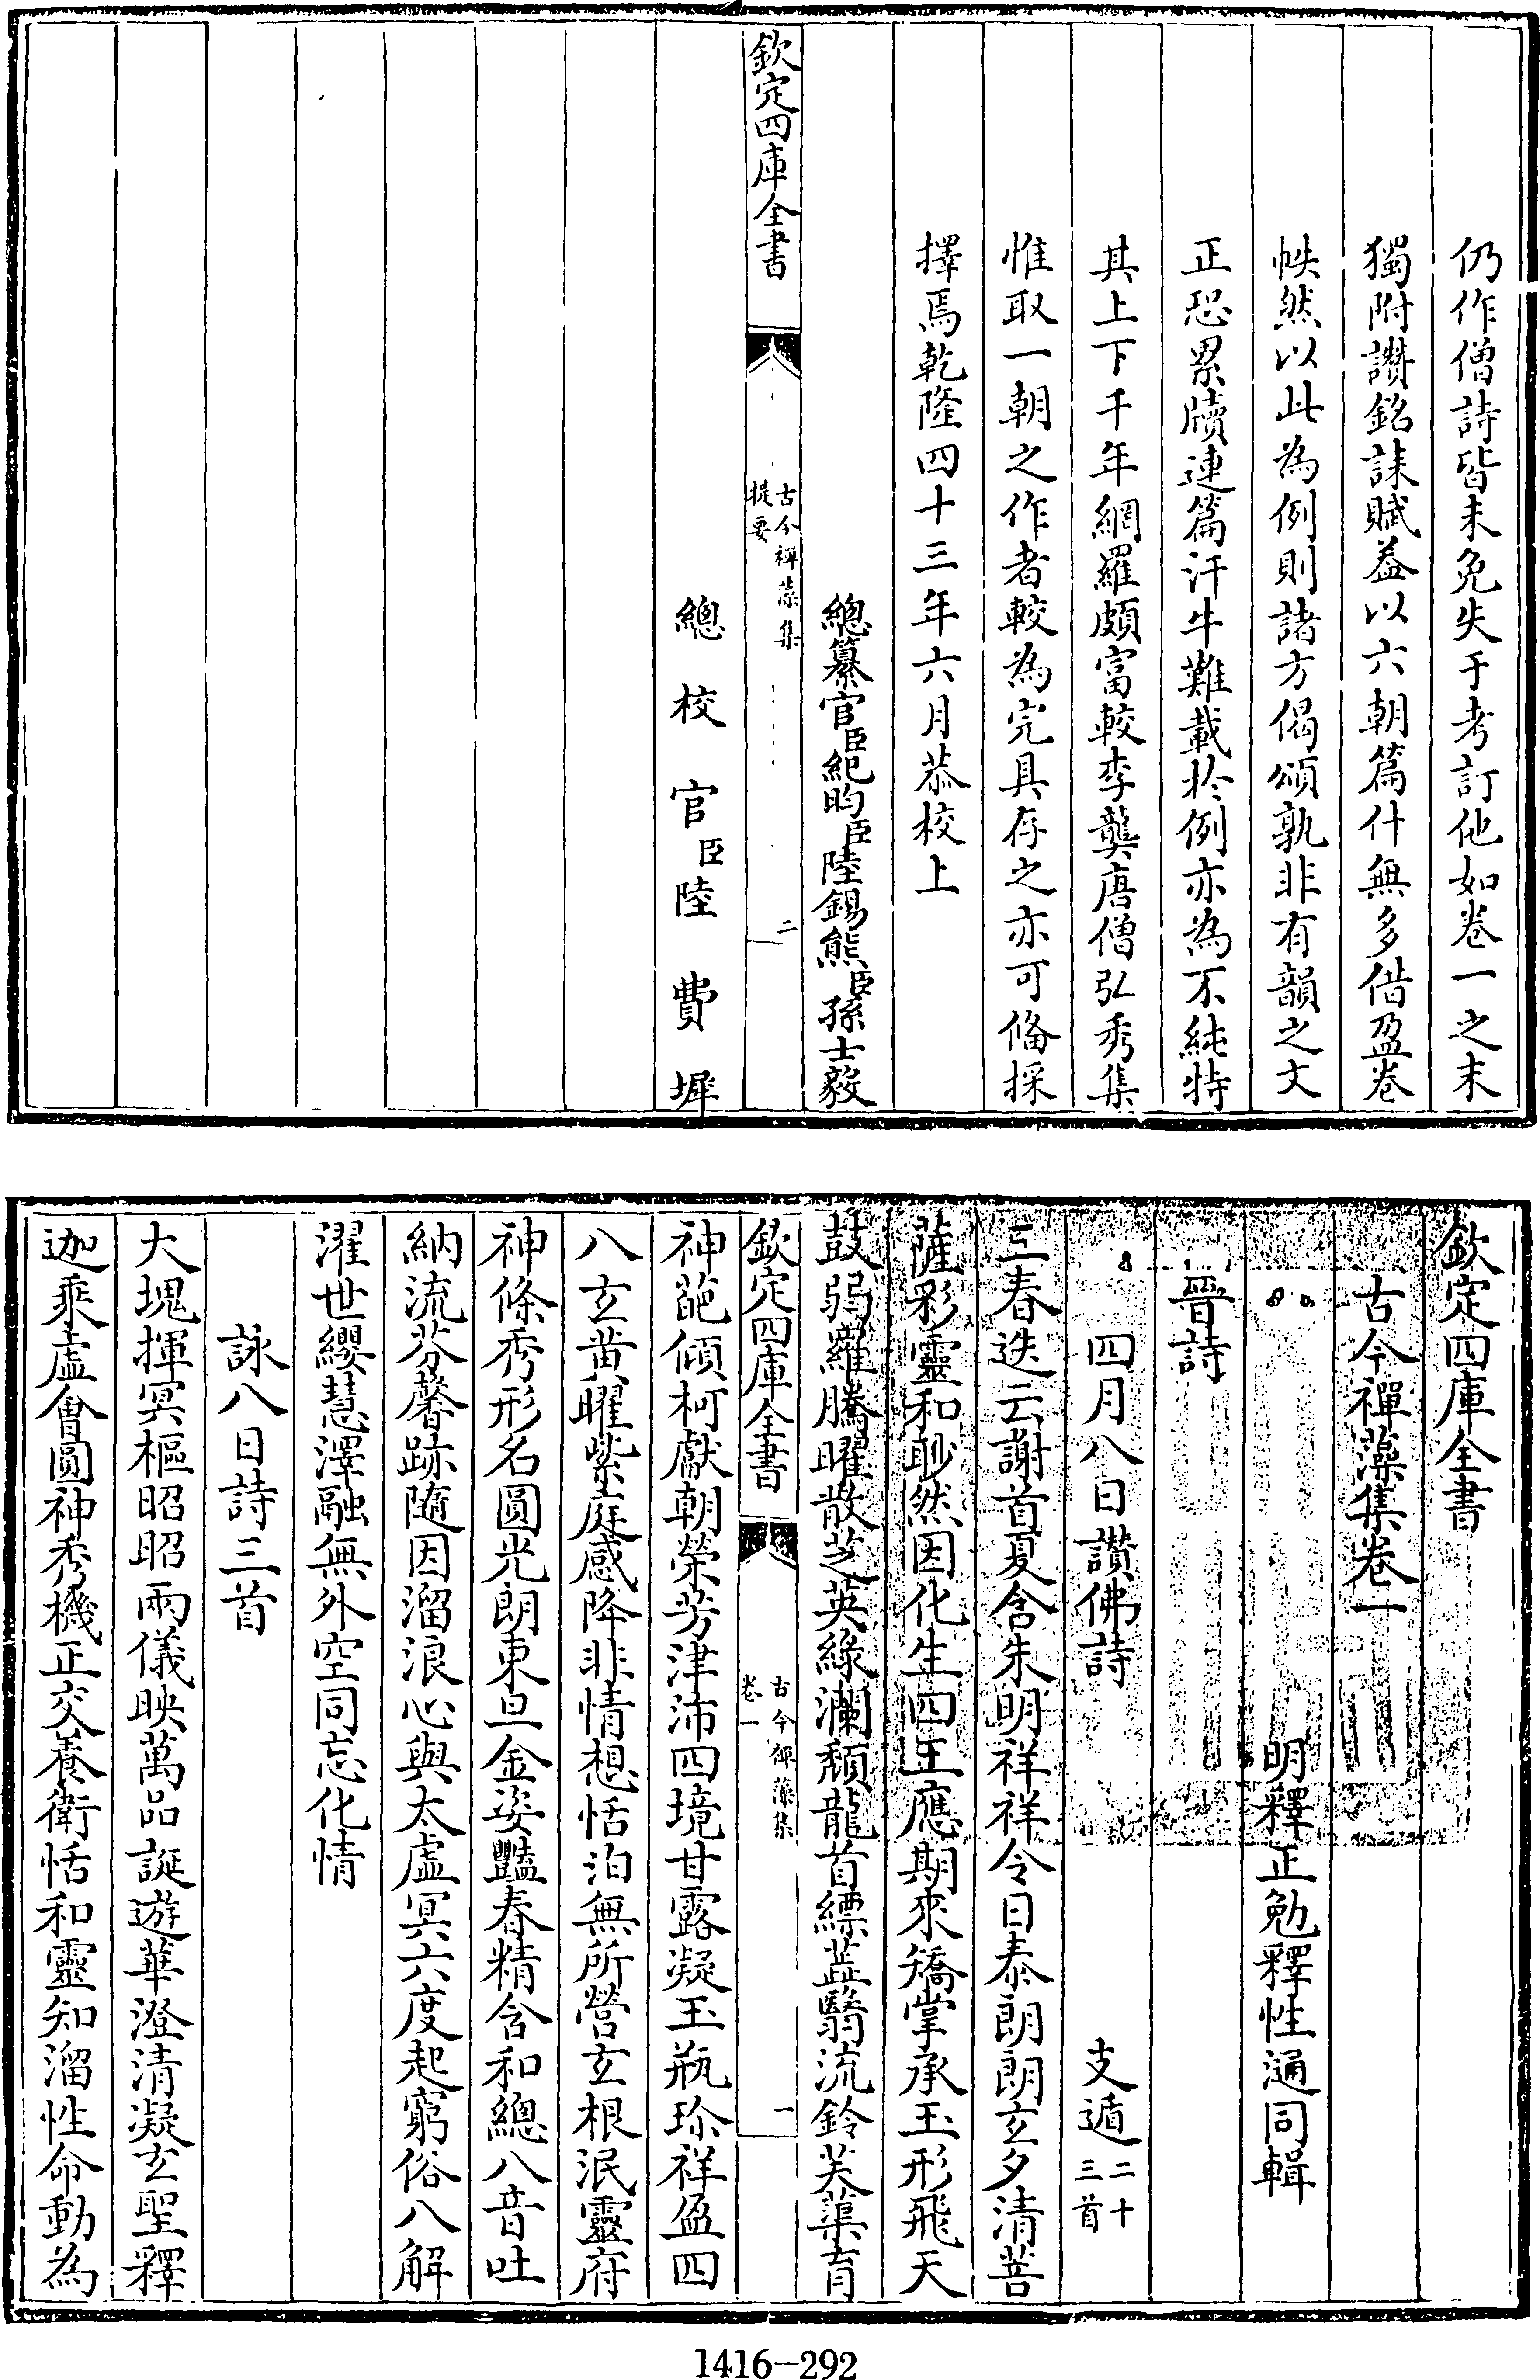 仍作僧詩皆未免失于考訂他如卷一之末
獨附讚銘誄賦益以六朝篇什無多借盈卷
帙然以此為例則諸方偈頌孰非有韻之文
正恐累牘連篇汗牛難載於例亦為不純特
其上下千年網羅頗富較李龏唐僧弘秀集
惟取一朝之作者較為完具存之亦可備採
擇焉乾隆四十三年六月恭校上
總纂官臣紀昀臣陸錫熊臣孫士毅
欽定四庫全書
古今禪藻集
提要
二
總校官臣陸費墀
欽定四庫全書
古今禪藻集卷一
明釋正勉釋性通同輯
晉詩
四月八日讚佛詩 支遁二十三首
三春迭云謝首夏含朱明祥祥令日泰朗朗玄夕清菩
薩彩靈和眇然因化生四王應期來矯掌承玉形飛天
鼓弱羅騰曜散芝英緣瀾頹龍首縹蘂翳流鈴芙蕖育
欽定四庫全書
古今禪藻集
卷一
一
神葩傾柯獻朝榮芳津沛四境甘露凝玉瓶珍祥盈四
八玄黃曜紫庭感降非情想恬泊無所營玄根泯靈府
神條秀形名圓光朗東旦金姿豔春精含和總八音吐
納流芬馨跡隨因溜浪心與太虛冥六度起窮俗八解
濯世纓慧澤融無外空同忘化情
詠八日詩三首
大塊揮冥樞昭昭兩儀映萬品誕遊華澄清凝玄聖釋
迦乘虛會圓神秀機正交養衛恬和靈知溜性命動為
1416-292